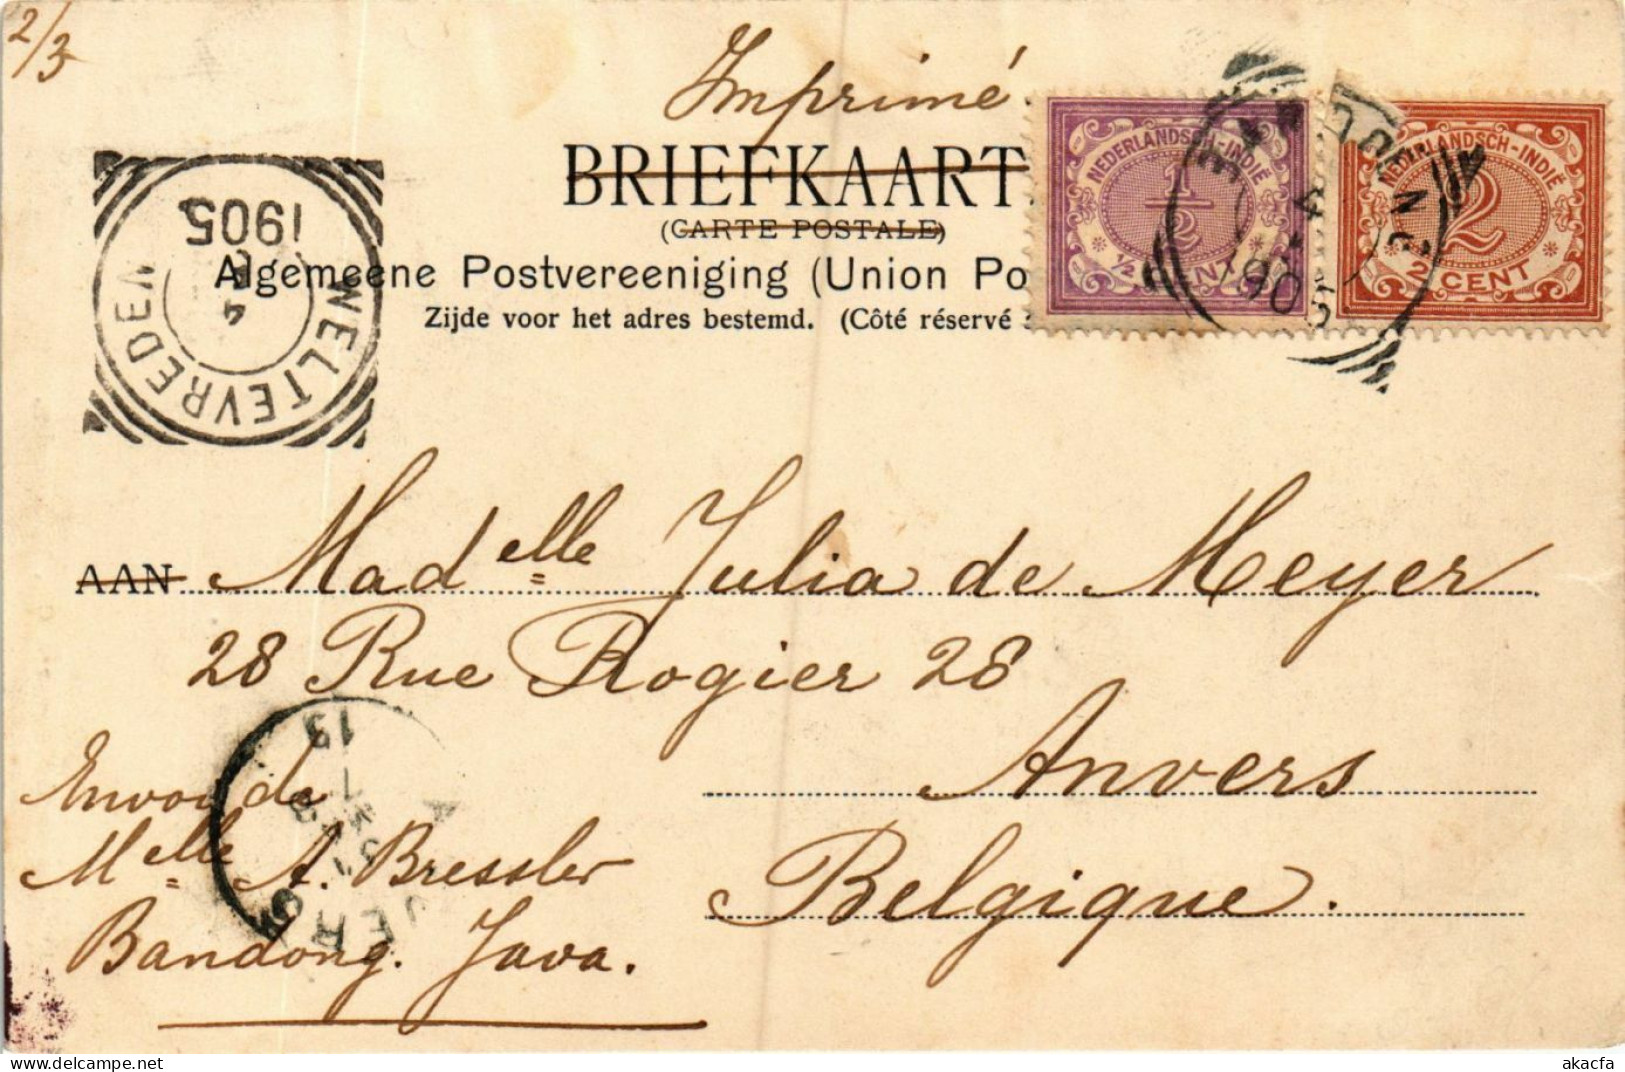 2/3
Imprimé.
BRIEFKAART.
(CARTE POSTALE)
Algemeene Postvereeniging (Union Po
Zijde voor het adres bestemd. (Côté réservé
NEDERLANDSCH-INDIË
1/2
1/2 CENT
NEDERLANDSCH-INDIË
2
2 CENT
WELTEVREDEN
4
1905
AAN Madelle Julia de Meyer
28 Rue Rogier 28
Anvers
Belgique.
Envoi de
Melle A. Bressler
Bandong. Java.
13
akacfa